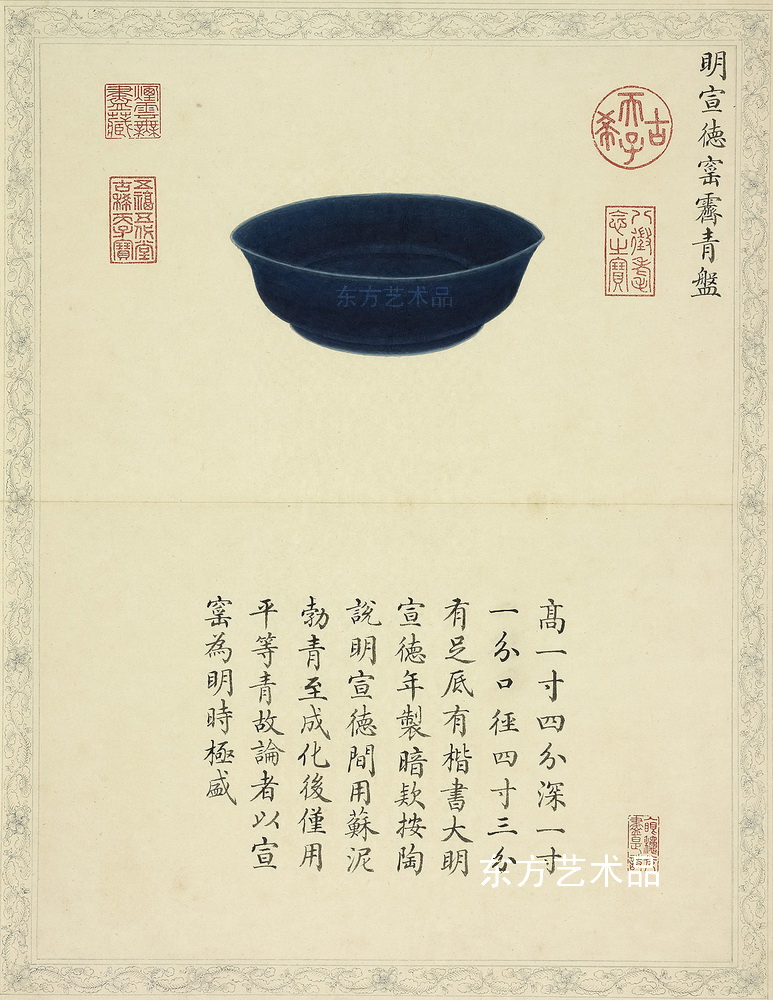 明宣德窯霽青盤
古希天子
八徵耄念之寶
煙雲無盡藏
五福五代堂古稀天子寶
东方艺术品
高一寸四分深一寸
一分口徑四寸三分
有足底有楷書大明
宣德年製暗款按陶
說明宣德間用蘇泥
勃青至成化後僅用
平等青故論者以宣
窯為明時極盛
东方艺术品